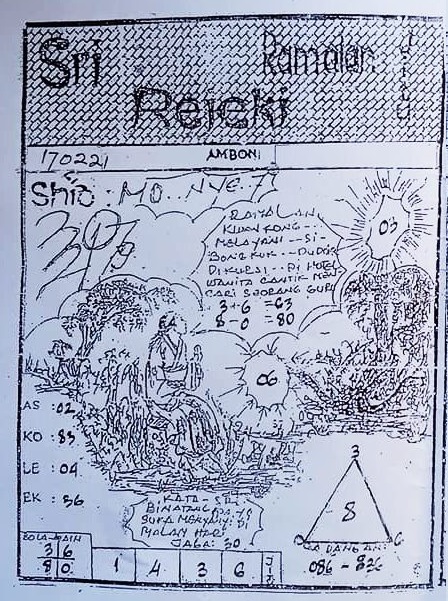 Sri
Ramalan
Rejeki
170221
AMBON
Shio : MO.. NYE. T
RAMALAN
KWAN KONG
MELAYANI -- SI-
BONGKUK -- DUDUK
DIKURSI
WANITA CANTIK MEN
CARI SEORANG GURU
3+6 =63
8-0 =80
03
06
AS : 02
KO : 83
LE : 04
EK : 36
BINATANG
SUKA MENYANYI DI
MALAM HARI
JAGA : 30
3 6
8 0
1 4 3 6
3
8
0 6
CADANGAN:
086 - 836